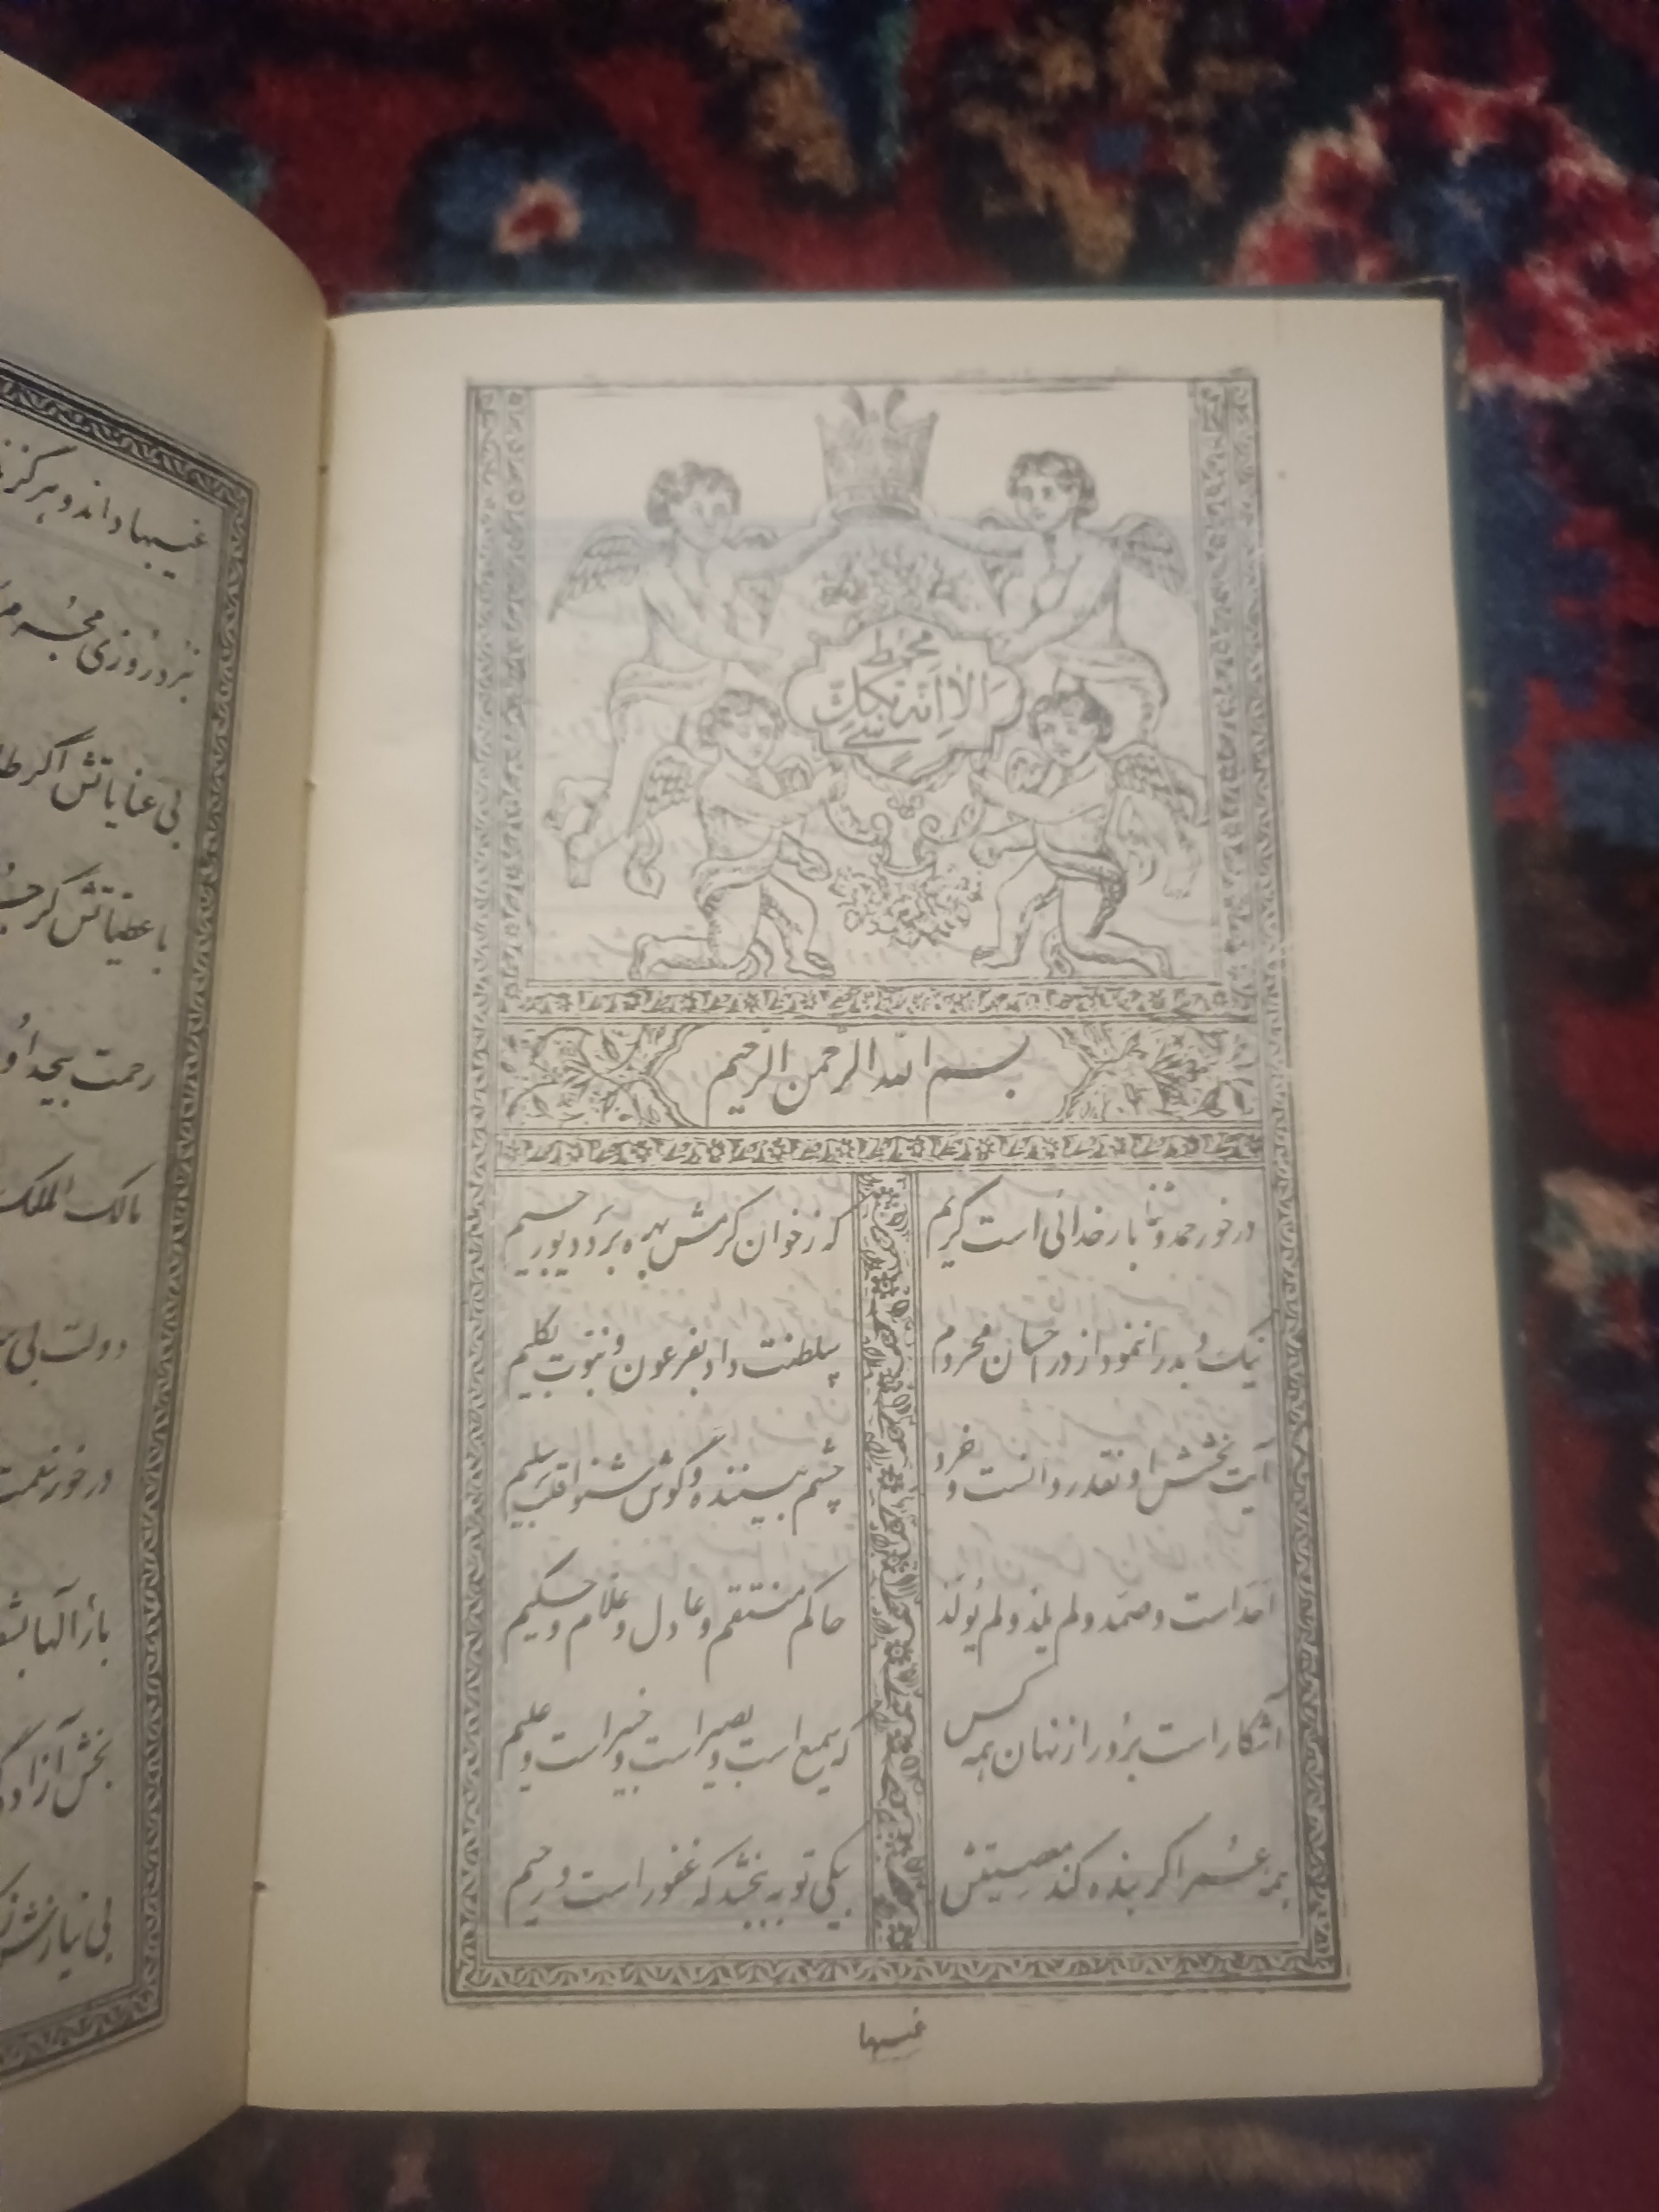 الا انه بکل شیء محیط
بسم الله الرحمن الرحیم
در خور حمد و ثنا بار خدائی است کریم
که ز خوان کرمش بهره برد دیو رجیم
نیک و بد را ننمود از در احسان محروم
سلطنت داد بفرعون و نبوت بکلیم
آیت بخشش او نقد روانست و خرد
چشم بیننده و گوش شنوا قلب سلیم
احد است و صمد و لم یلد و لم یولد
حاکم منتقم و عادل و علام و حکیم
آشکار است بر او راز نهان همه کس
که سمیع است و بصیر است و خبیر است و علیم
همه عمر اگر بنده کند معصیتش
بیکی توبه ببخشد که غفور است و رحیم
غیبها
غیبها داند و هرگز
نبرد روزی مجرم
بی عنایاتش اگر
با عطیاتش گر
رحمت بیحد او
مالک الملک
دولت بی
در خور نعمت
بار آلها
بخش آزاد
بی نیازش